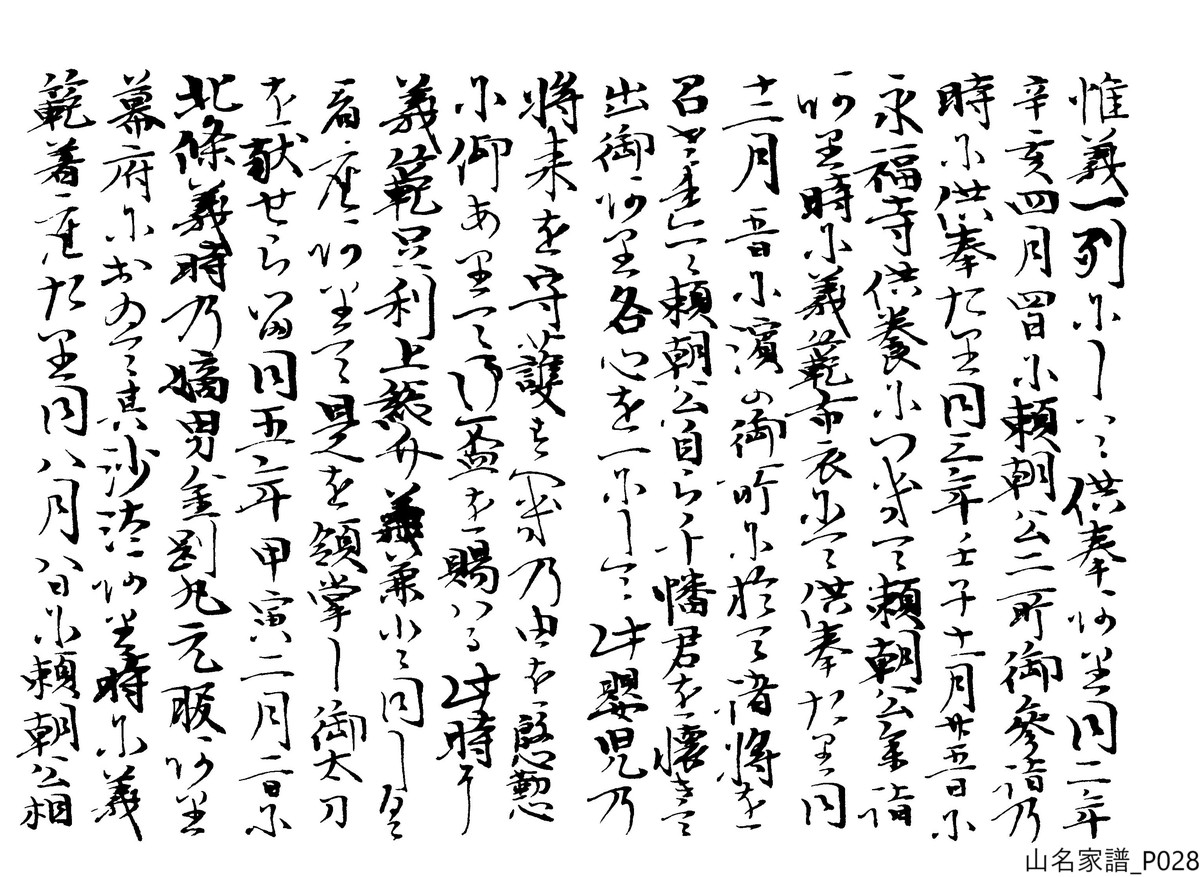 惟義一列にして供奉ありき同二年
辛亥四月四日に頼朝公二所御参詣乃
時に供奉たり同三年壬子十一月廿五日に
永福寺供養につきて頼朝公参詣
あり時に義範布衣にて供奉たり同
十二月五日に濱の御所に於て諸将を
召き頼朝公自ら千幡君を懐きて
出御あり各心を一にして此嬰児乃
将来を守護すへき乃由を慇懃
に仰ありて御盃を賜はる此時に
義範足利上総介義兼に同しく
着座ありて是を領掌し御太刀
を献せらる同五年甲寅二月二日に
北條義時乃嫡男金剛丸元服あり
幕府において其沙汰あり時に義
範着座たり同八月八日に頼朝公相
山名家譜_P028